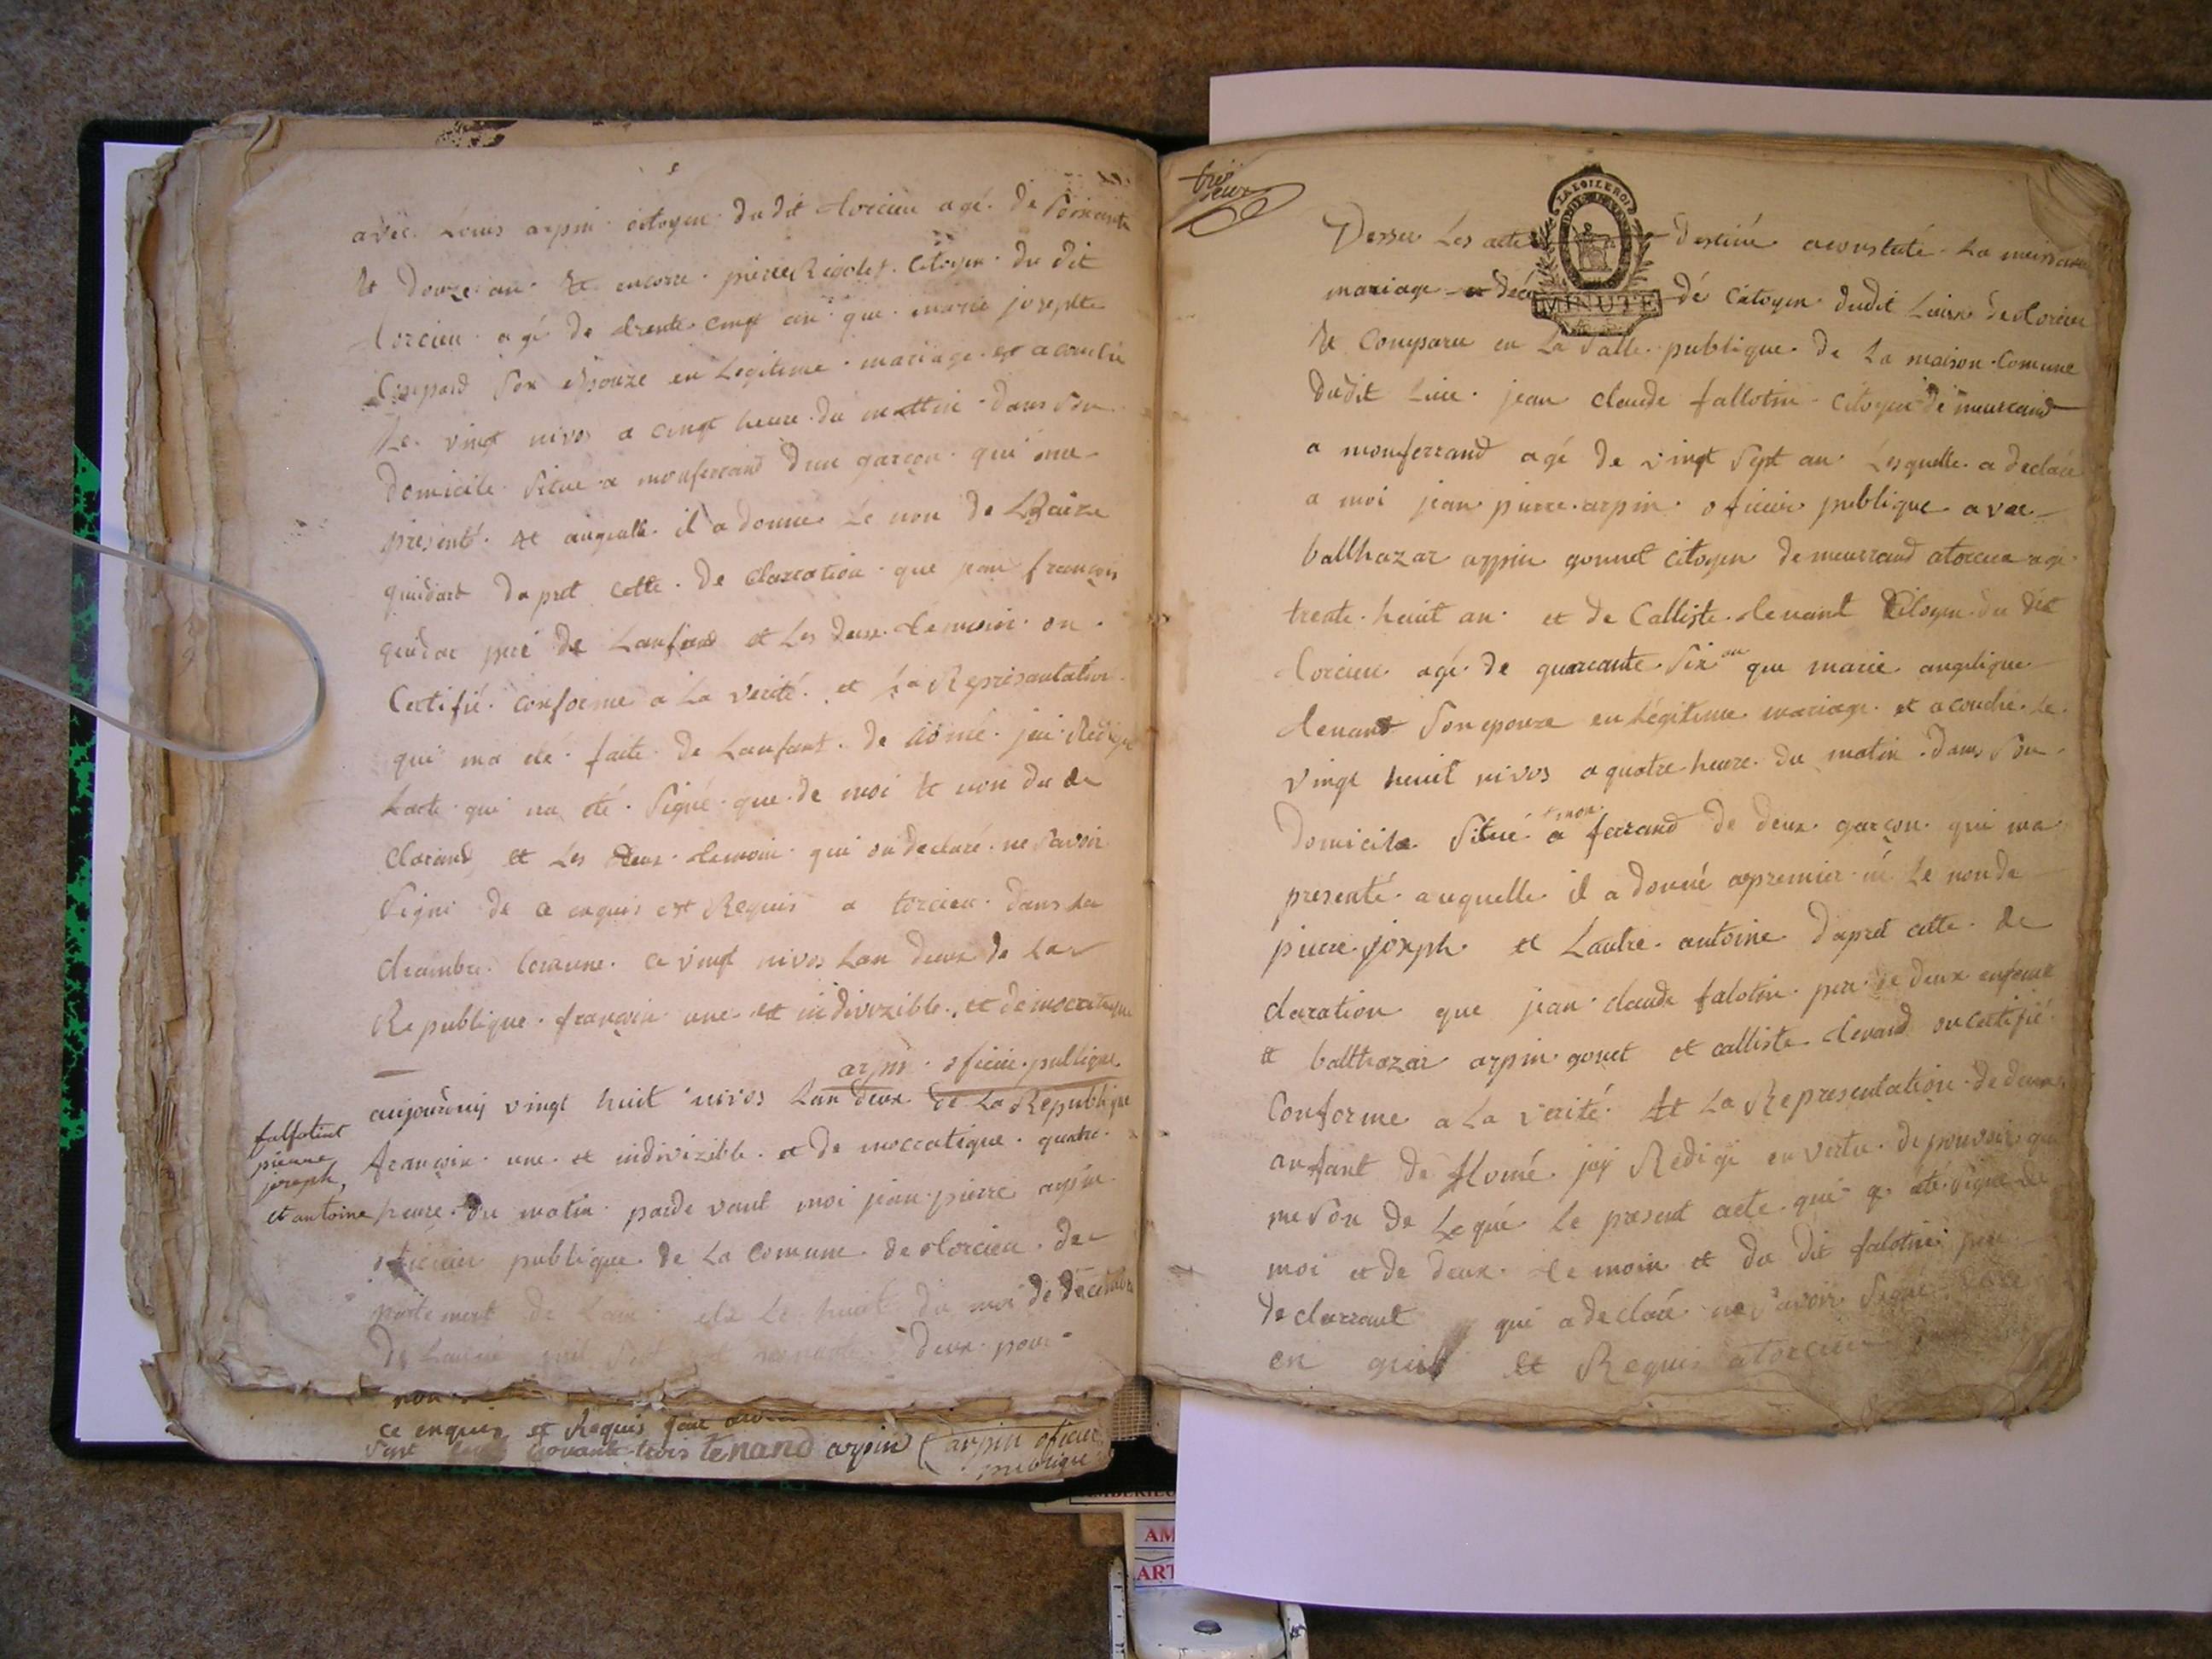 avec Louis arpin citoyen du dit torcieu agé de soixante
et douze an et encorre pierre Rigolet Citoyen du dit
torcieu agé de trente cinqt an que marie josephte
son epouze en Legitime mariage est acouché
Le vingt nivos a cinqt heure du mattin dans son
domicile situe a monferrand d'un garcon qui ma
presenté et auquelle il a donné Le non de
guidart da pret cette de claration que jean françois
guidar pere de Lanfand et Les deux temoin on
Certifié conforme a La verité et La Représantation
qui ma eté faite de Lanfant de nomé jai Redigé
Lacte qui na eté signé que de moi et non du de
clarand et Les deux temoin qui on declaré ne savoir
signé de ce enquis et Requis a torcieu dans La
chambre Comune ce vingt nivos Lan deux de La
Republique françoise une et indivizible et democratique
arpin oficier publique
aujourduy vingt huit nivos Lan deux de La Republique
falfotint
pierre
joseph,
et antoine
françoise une et indivizible et de moccatique quatre
heure du matin parde vant moi jean pierre arpin
oficier publique de La Comune de torcieu de
partement de Lain elu Le huit du moi de décembre
de Lannée mil sept nonante deux pour
non
ce enquis et Requis
sept nonante trois tenand arpin arpin oficier
publique
LA LOI LE ROI
MINUTE
Desser Les acte destiné a constaté La neissance
mariage et decé dé Citoyen dudit Lieux de torcieu
et Comparu en La salle publique de La maison Comune
dudit Lieu jean claude fallotin Citoyen demeurand
a monferrand agé de vingt sept an Lesquelle a declaré
a moi jean pierre arpin oficier publique avec
balthazar arpin gonnet citoyen demeurrand atorcieu agé
trente huit an et de Calliste tenant Citoyen du dit
torcieu agé de quarante six an que marie angelique
tenant son epouze en Légitime mariage et acouché Le
vingt huit nivos a quatre heure du matin dans son
domicile situé a mon ferrand de deux garçon qui ma
presenté auquelle il a donné aupremier né Le non de
pierre joseph et Lautre antoine dapret cette de
claration que jean claude falotin pere de deux enfant
et balthazar arpin gonet et calliste tenand on certifié
Conforme a La verité et La Representation de deux
anfant de nomé jay Redigé en vertu de pouvoir qui
me son de Legué Le present acte qui a été signé de
moi et de deux te moin et du dit falotin pere
de clarrant qui a declaré ne savoir signé
en quis et Requis atorcieu